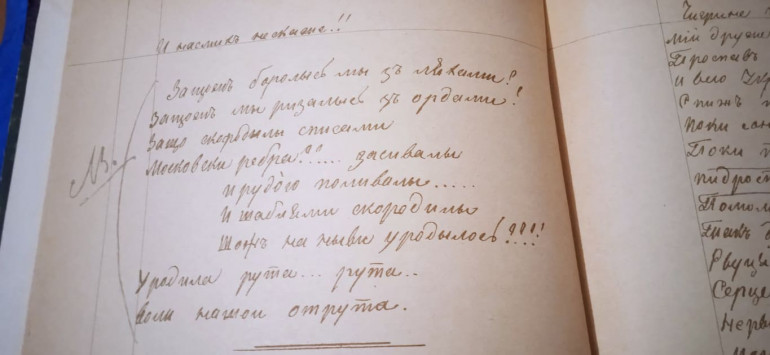 И насмихъ нескаже!!
Защожъ боролысь мы зъ ляхами?
Защожъ мы ризалысь зъ ордами!
Защо скородылы списами
NB.
Московски ребра??.... засивалы
И рудою поливалы.....
И шаблями скородилы
Щожъ на ныви уродылось???!!
Уродила рута... рута..
Воли нашои отрута.
Чигрине
мій друже
Проспавъ
и всю
Спижъ
Поки
Поки
пидрост
Помол
Такъ
Рвуця
Серце